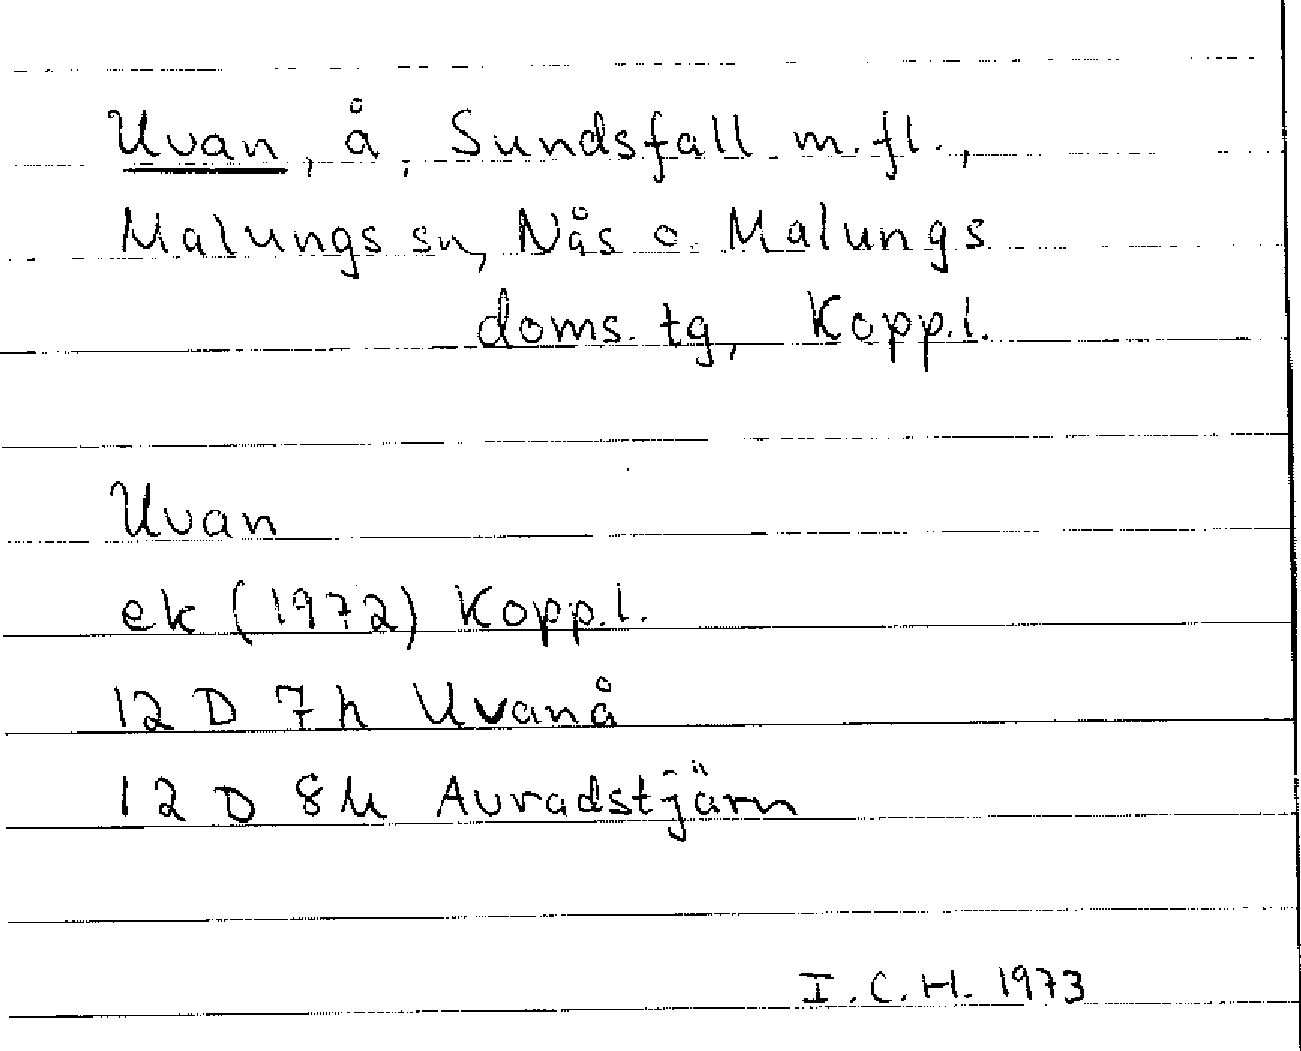 Uvan, å, Sundsfall m.fl.,
Malungs sn, Nås o. Malungs
doms. tg, Kopp.l.
Uvan
ek (1972) Kopp.l.
12 D 7h Uvanå
12 D 8h Avradstjärn
I.C.H. 1973